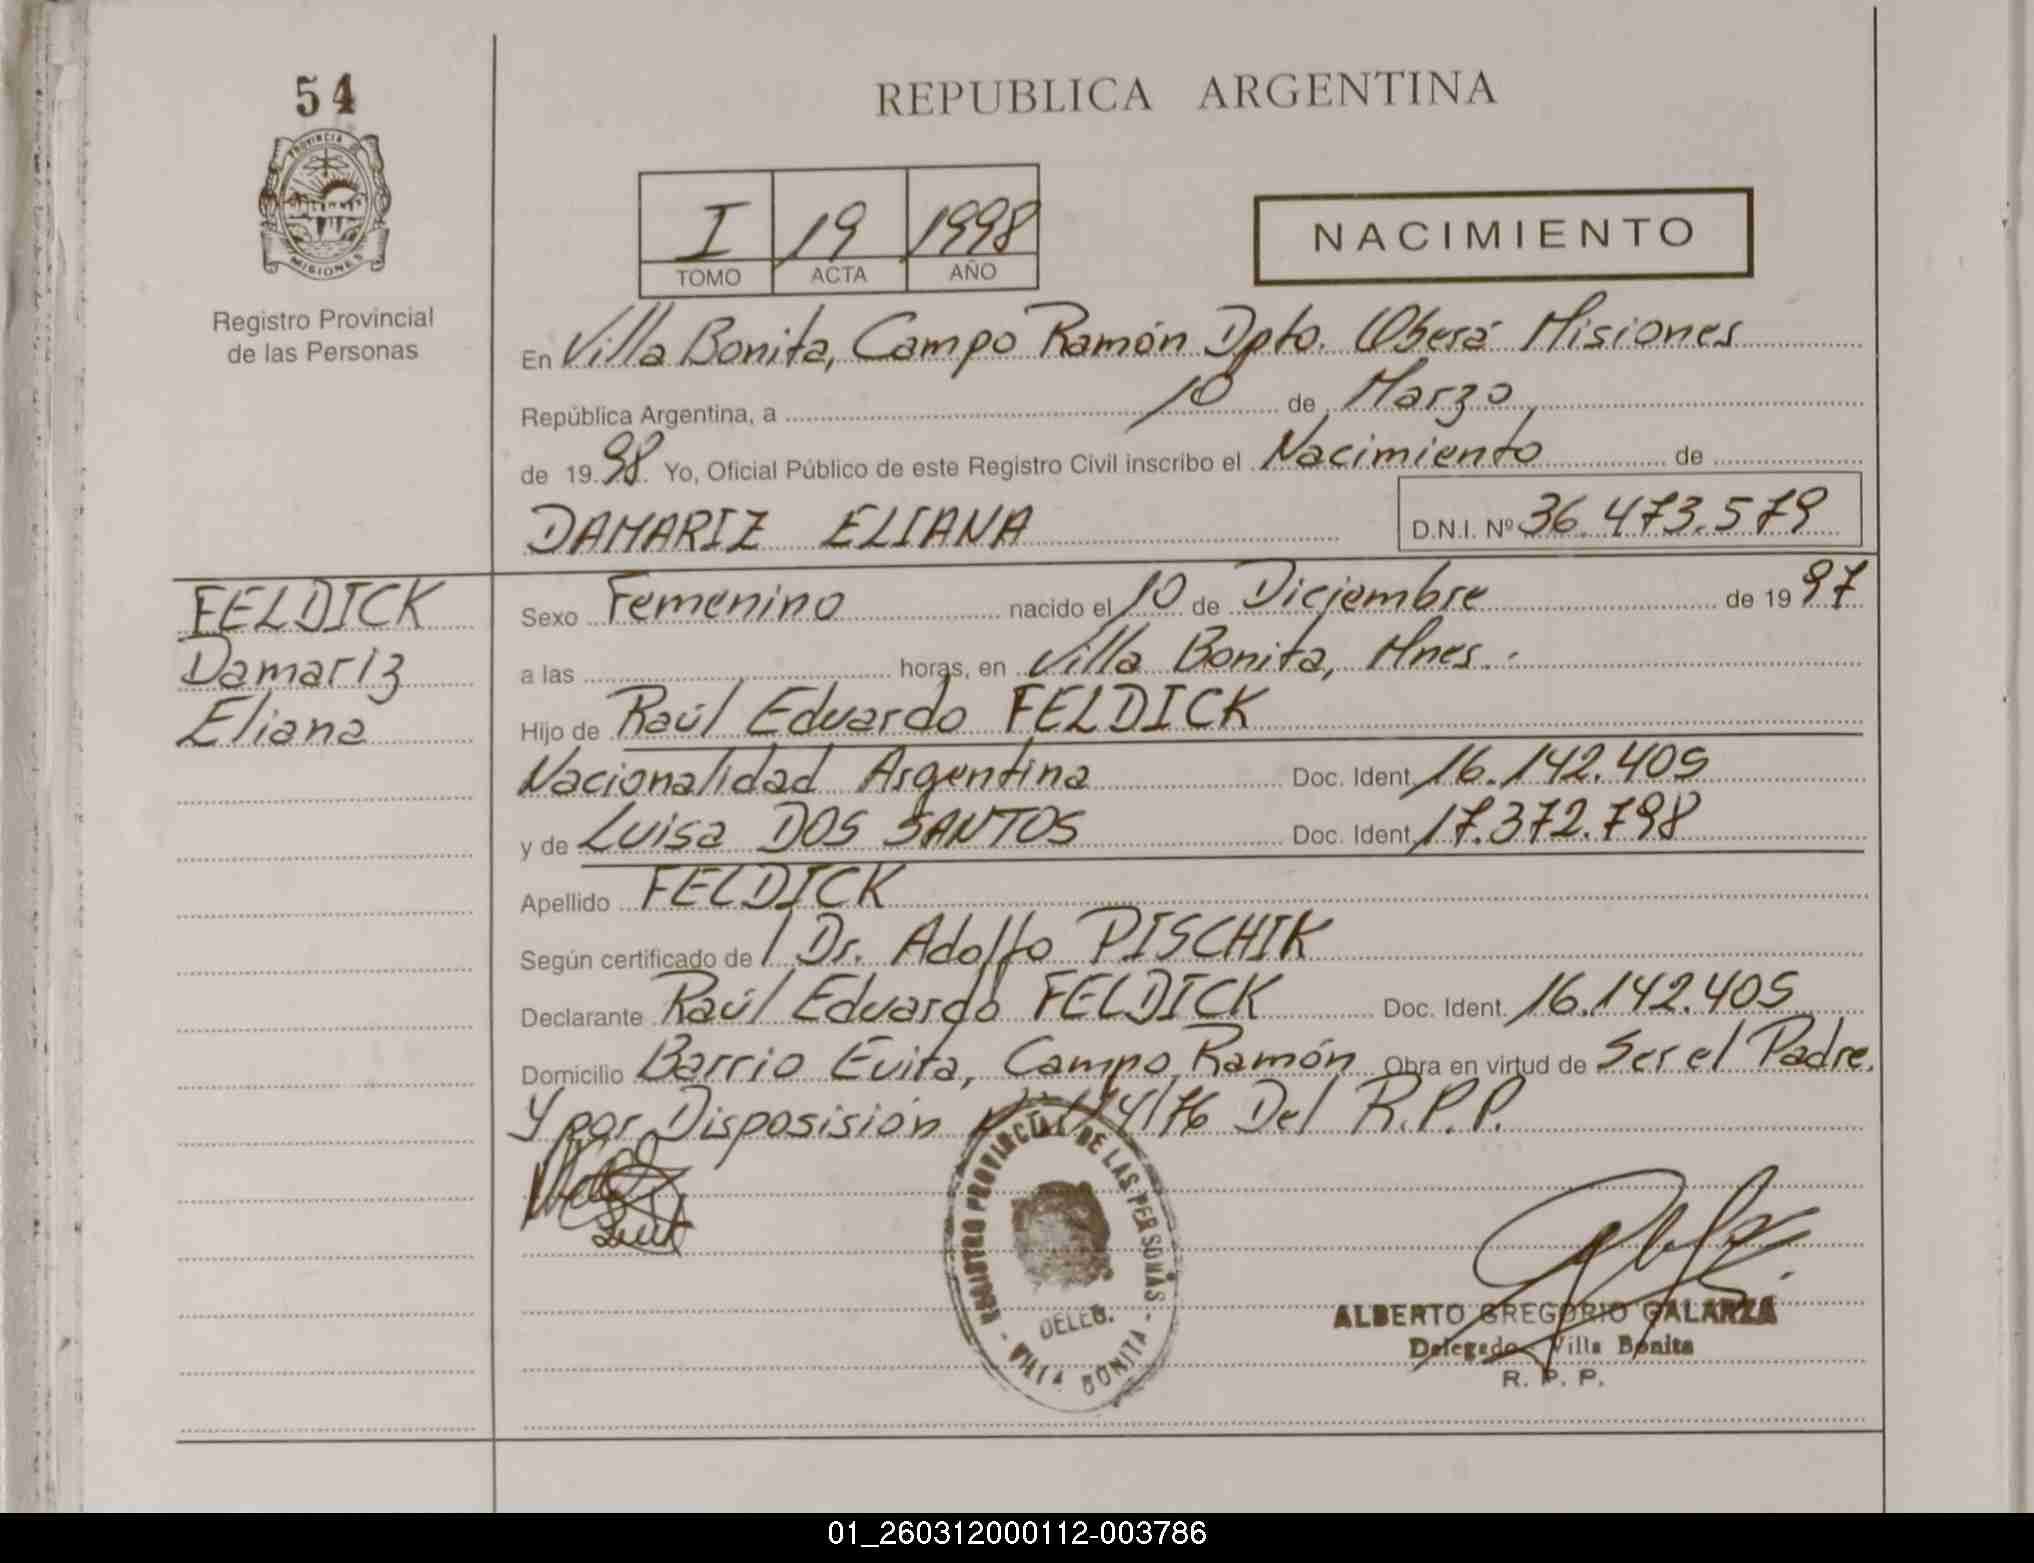 54
REPUBLICA ARGENTINA
PROVINCIA DE
MISIONES
Registro Provincial
de las Personas
I 19 1998
TOMO ACTA AÑO
NACIMIENTO
En Villa Bonita, Campo Ramón Dpto. Oberá Misiones
República Argentina, a 10 de Marzo
de 19 98 Yo, Oficial Público de este Registro Civil inscribo el Nacimiento de
DAMARIZ ELIANA D.N.I. Nº 36.473.579
FELDICK
Damariz
Eliana
Sexo Femenino nacido el 10 de Diciembre de 19 97
a las horas, en Villa Bonita, Mnes.
Hijo de Raúl Eduardo FELDICK
Nacionalidad Argentina Doc. Ident. 16.142.405
y de Luisa DOS SANTOS Doc. Ident. 17.372.798
Apellido FELDICK
Según certificado de l Dr. Adolfo PISCHIK
Declarante Raúl Eduardo FELDICK Doc. Ident. 16.142.405
Domicilio Barrio Evita, Campo Ramón Obra en virtud de Ser el Padre.
Y por Disposisión 4/76 Del R.P.P.
REGISTRO PROVINCIAL DE LAS PERSONAS
DELEG.
- VILLA BONITA -
ALBERTO GREGORIO GALARZA
Delegado - Villa Bonita
R. P. P.
01_260312000112-003786